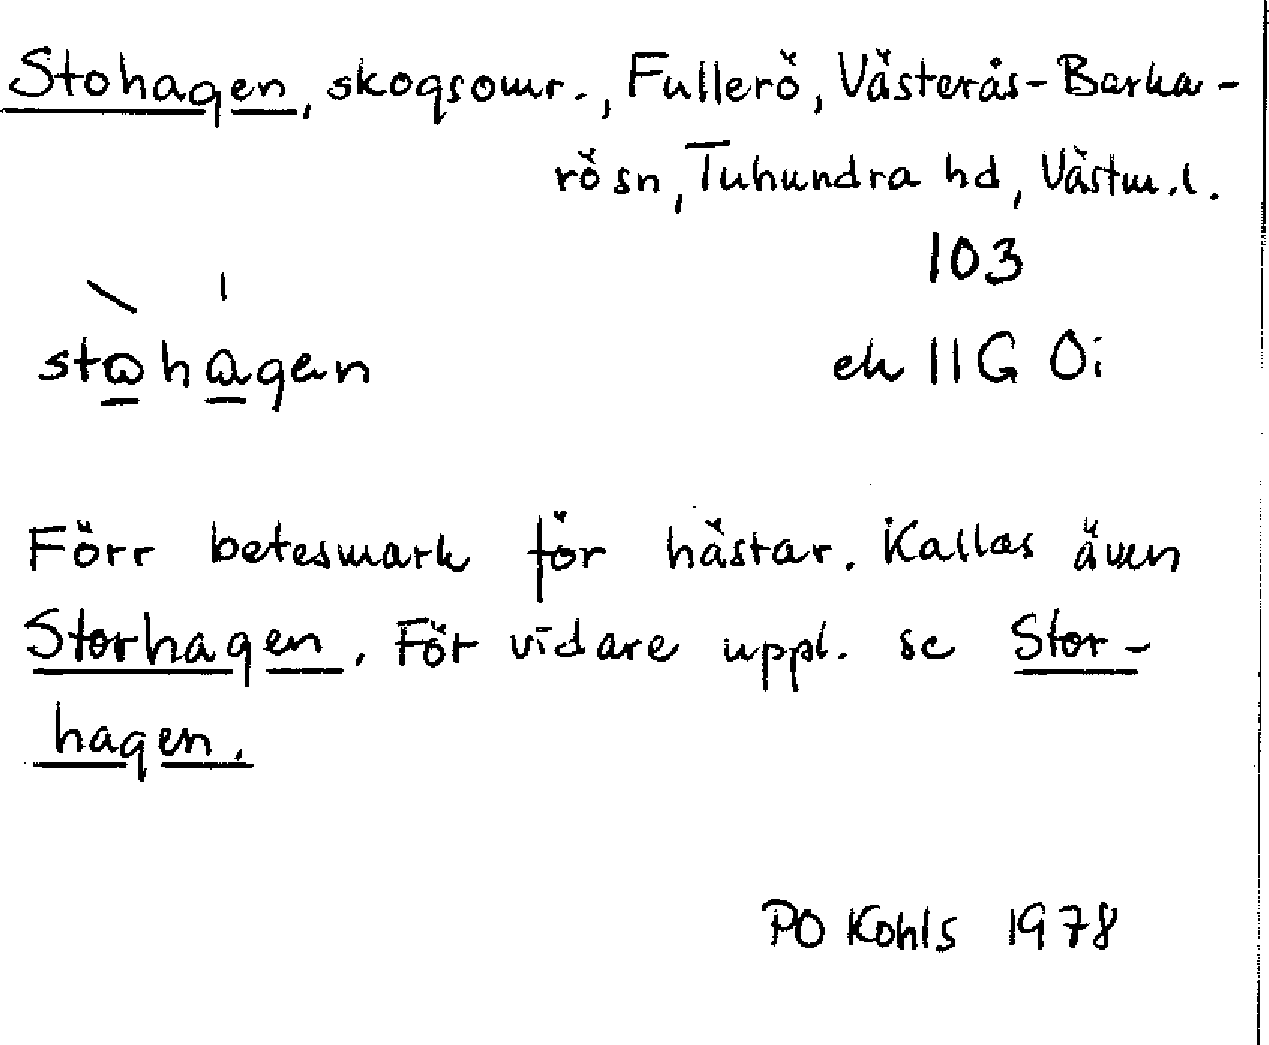 Stohagen, skogsomr., Fullerö, Västerås-Barka-
rö sn, Tuhundra hd, Västm.l.
103
ek 11G 0i
Förr betesmark för hästar. Kallas även
Storhagen. För vidare uppl. se Stor-
hagen.
PO Kohls 1978